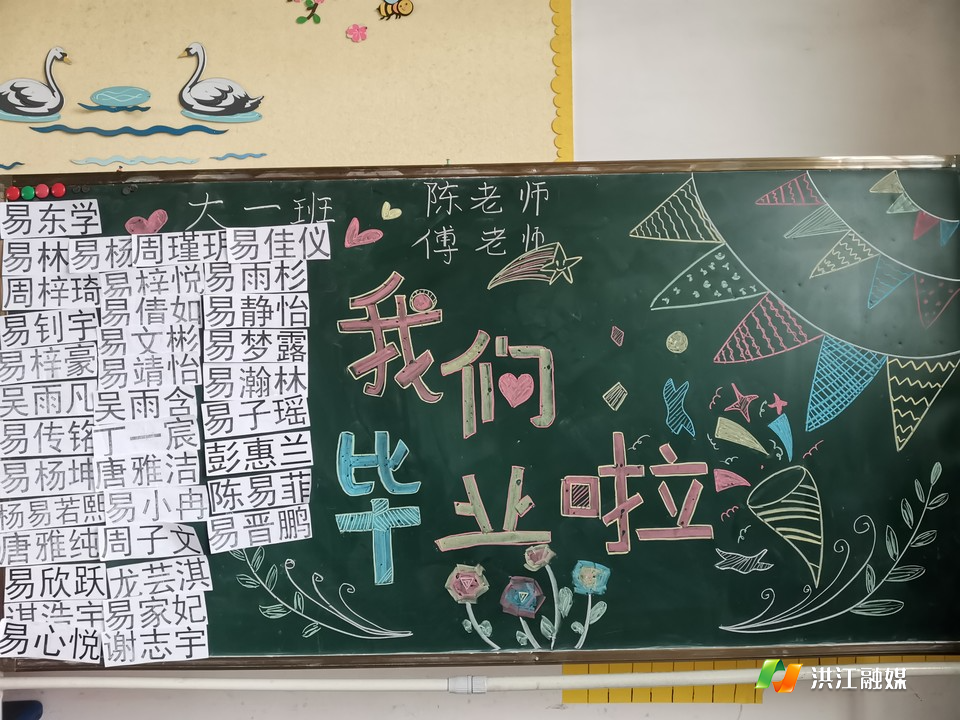 大一班
陈老师
傅老师
易东学
易林
易杨
周瑾玥
易佳仪
周梓琦
易梓悦
易雨杉
易钊宇
易倩如
易静怡
易文彬
易梦露
易梓豪
易靖怡
易瀚林
吴雨凡
吴雨含
易子瑶
易传铭
丁一宸
彭惠兰
易杨坤
唐雅洁
陈易菲
杨易若熙
易小冉
易晋鹏
唐雅纯
周子文
易欣跃
龙芸淇
淇浩宇
易家妃
易心悦
谢志宇
我们
毕业啦
洪江融媒